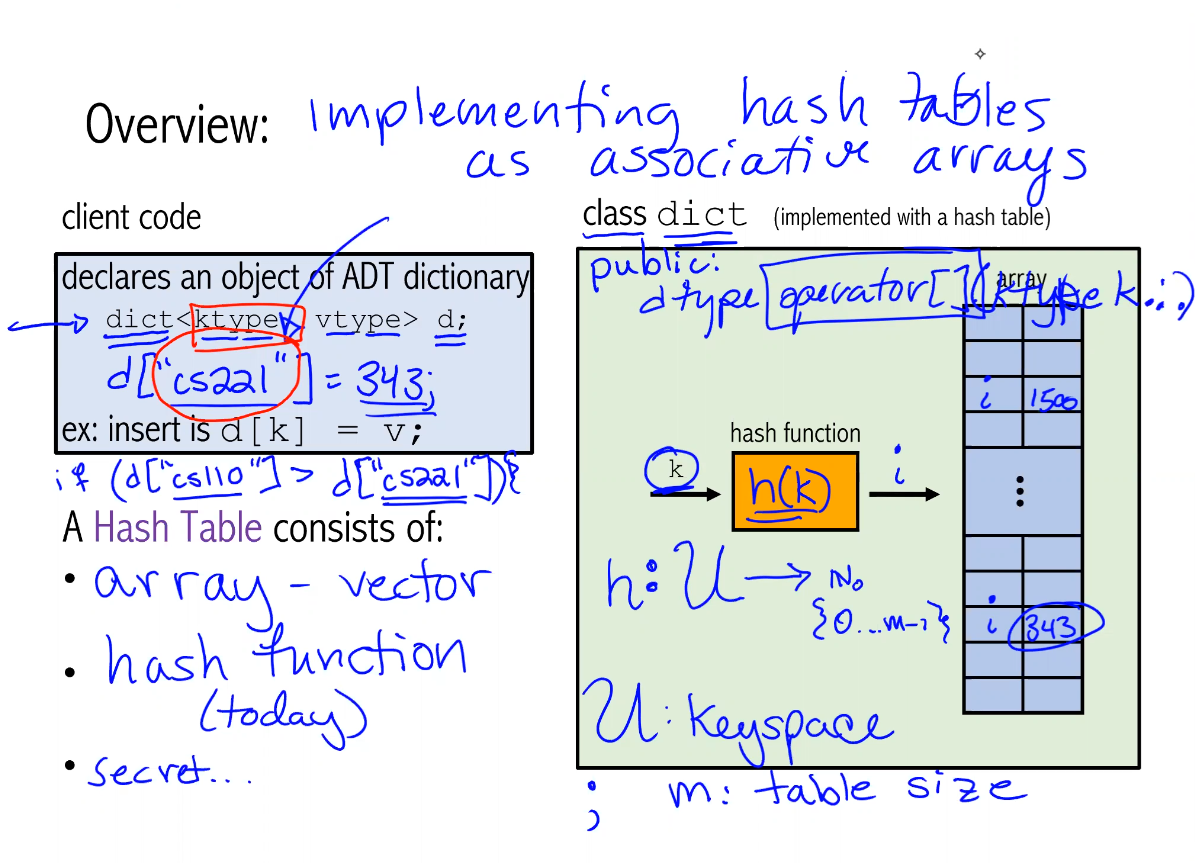 Overview: Implementing hash tables
as associative arrays
client code
declares an object of ADT dictionary
dict<ktype, vtype> d;
d["cs221"] = 343;
ex: insert is d[k] = v;
if (d["cs110"] > d["cs221"]){
A Hash Table consists of:
• array - vector
• hash function
(today)
• secret...
class dict (implemented with a hash table)
public:
dtype operator[](ktype k...)
array
i 1500
hash function
k
h(k)
i
⋮
h: U → N₀
{0...m-1}
i 343
U: Keyspace
; m: table size